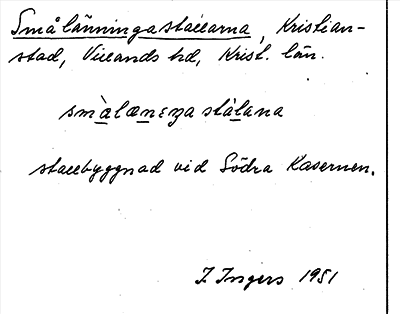 Smålänningastallarna, Kristian-
stad, Villands hd, Krist. län.
småläneŋa stålana
stallbyggnad vid Södra Kasernen.
I. Ingers 1951